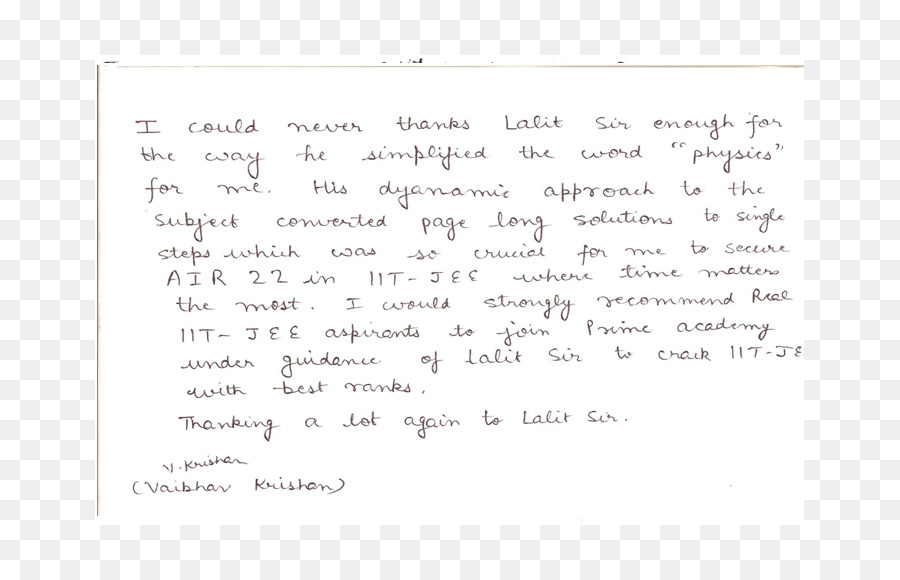 I could never thanks Lalit Sir enough for
the way he simplified the word "physics"
for me. His dyanamic approach to the
subject converted page long solutions to single
steps which was so crucial for me to secure
AIR 22 in IIT-JEE where time matters
the most. I would strongly recommend Real
IIT- JEE aspirants to join Prime academy
under guidance of Lalit Sir to crack IIT-JE
with best ranks.
Thanking a lot again to Lalit Sir.
V. Krishan
(Vaibhav Krishan)